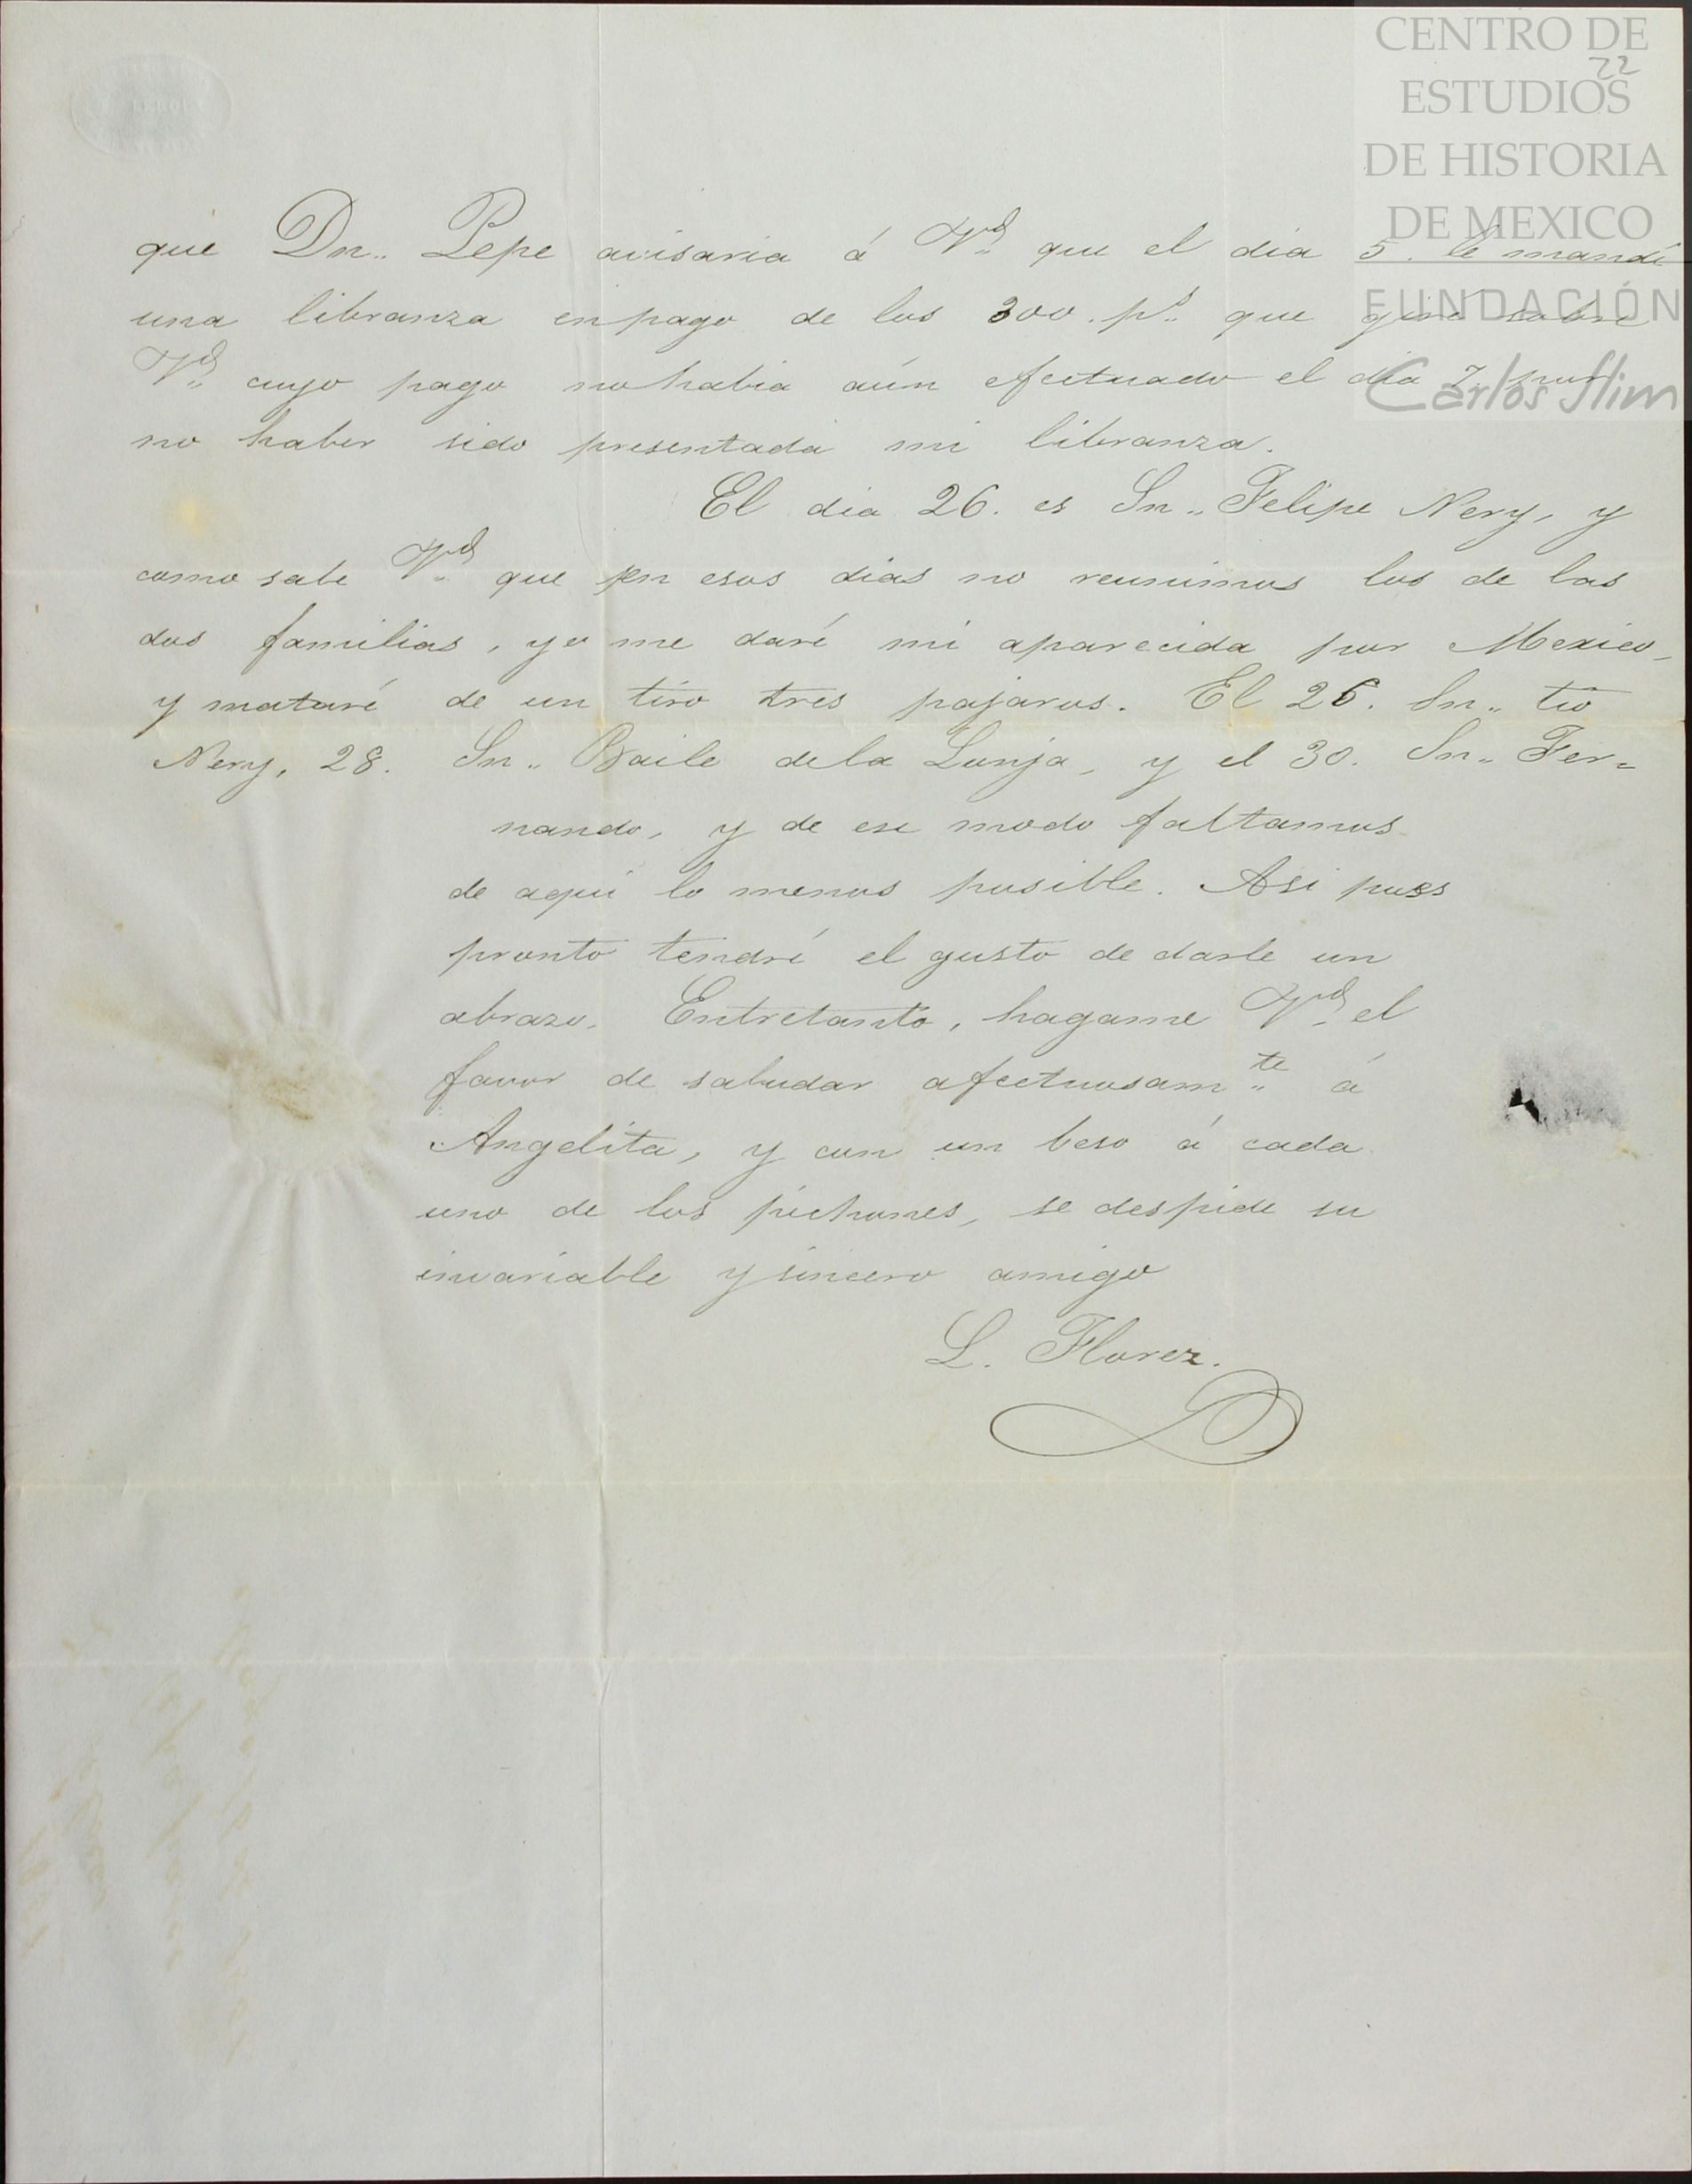 CENTRO DE
22
ESTUDIOS
DE HISTORIA
DE MEXICO
FUNDACIÓN
Carlos Slim
que Dn.. Pepe avisaria á Vd. que el dia 5. le mandé
una libranza en pago de los 300. ps. que giré sobre
Vd. cuyo pago no habia aún efectuado el dia 7. por
no haber sido presentada mi libranza.
El dia 26. es Sn.. Felipe Nery, y
como sabe Vd. que en esos dias no reunimos los de las
dos familias, yo me daré mi aparecida por Mexico,
y mataré de un tiro tres pajaros. El 26. Sn.. tio
Nery, 28. Sn.. Baile dela Lonja, y el 30. Sn.. Fer=
nando, y de ese modo faltamos
de aqui lo menos posible. Asi pues
pronto tendré el gusto de darle un
abrazo. Entretanto, hagame Vd. el
favor de saludar afectuosamte. á
Angelita, y con un beso á cada
uno de los pichones, se despide su
invariable y sincero amigo
L. Florez.